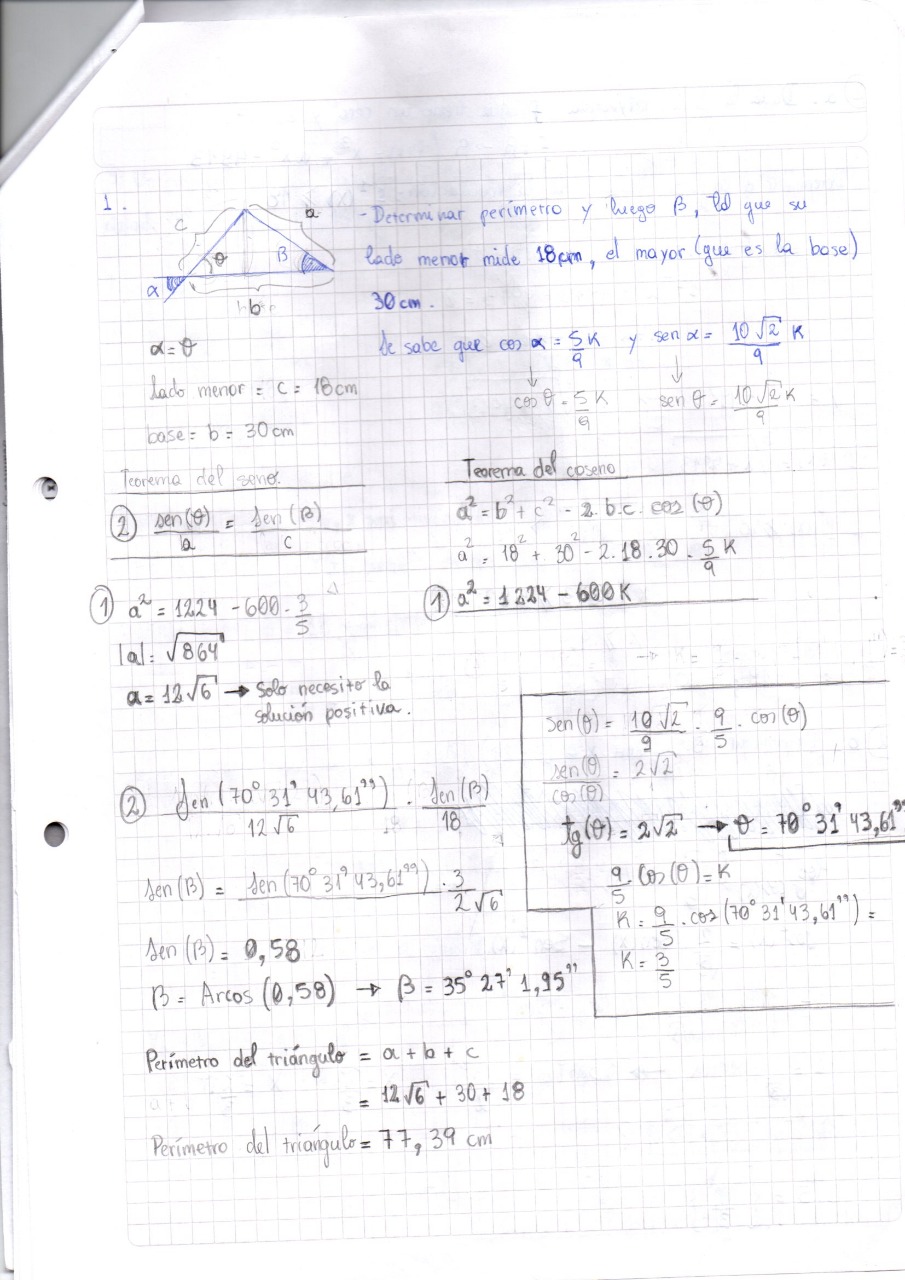 1.
c a
θ B
α
b
- Determinar perímetro y luego β, tal que su
lado menor mide 18cm, el mayor (que es la base)
30 cm.
Se sabe que cos α = 5/9 K y sen α = 10√2/9 K
α = θ
cos θ = 5/9 K sen θ = 10√2/9 K
lado menor = c = 18cm
base = b = 30 cm
Teorema del seno.
Teorema del coseno
② sen(θ)/a = sen(β)/c
a² = b² + c² - 2.b.c. cos (θ)
a² = 18² + 30² - 2.18.30. 5/9 K
① a² = 1224 - 600K
① a² = 1224 - 600 . 3/5
|a| = √864
a = 12√6 → Solo necesito la
solución positiva.
sen(θ) = 10√2/9 . 9/5 . cos(θ)
sen(θ)/cos(θ) = 2√2
tg(θ) = 2√2 → θ = 70° 31' 43,61''
9/5 . cos(θ) = K
K = 9/5 . cos(70° 31' 43,61'') =
K = 3/5
② sen(70° 31' 43,61'')/12√6 = sen(β)/18
sen(β) = sen(70° 31' 43,61'') . 3/2√6
sen(β) = 0,58
β = Arcos (0,58) → β = 35° 27' 1,95''
Perímetro del triángulo = a + b + c
= 12√6 + 30 + 18
Perímetro del triángulo = 77,39 cm